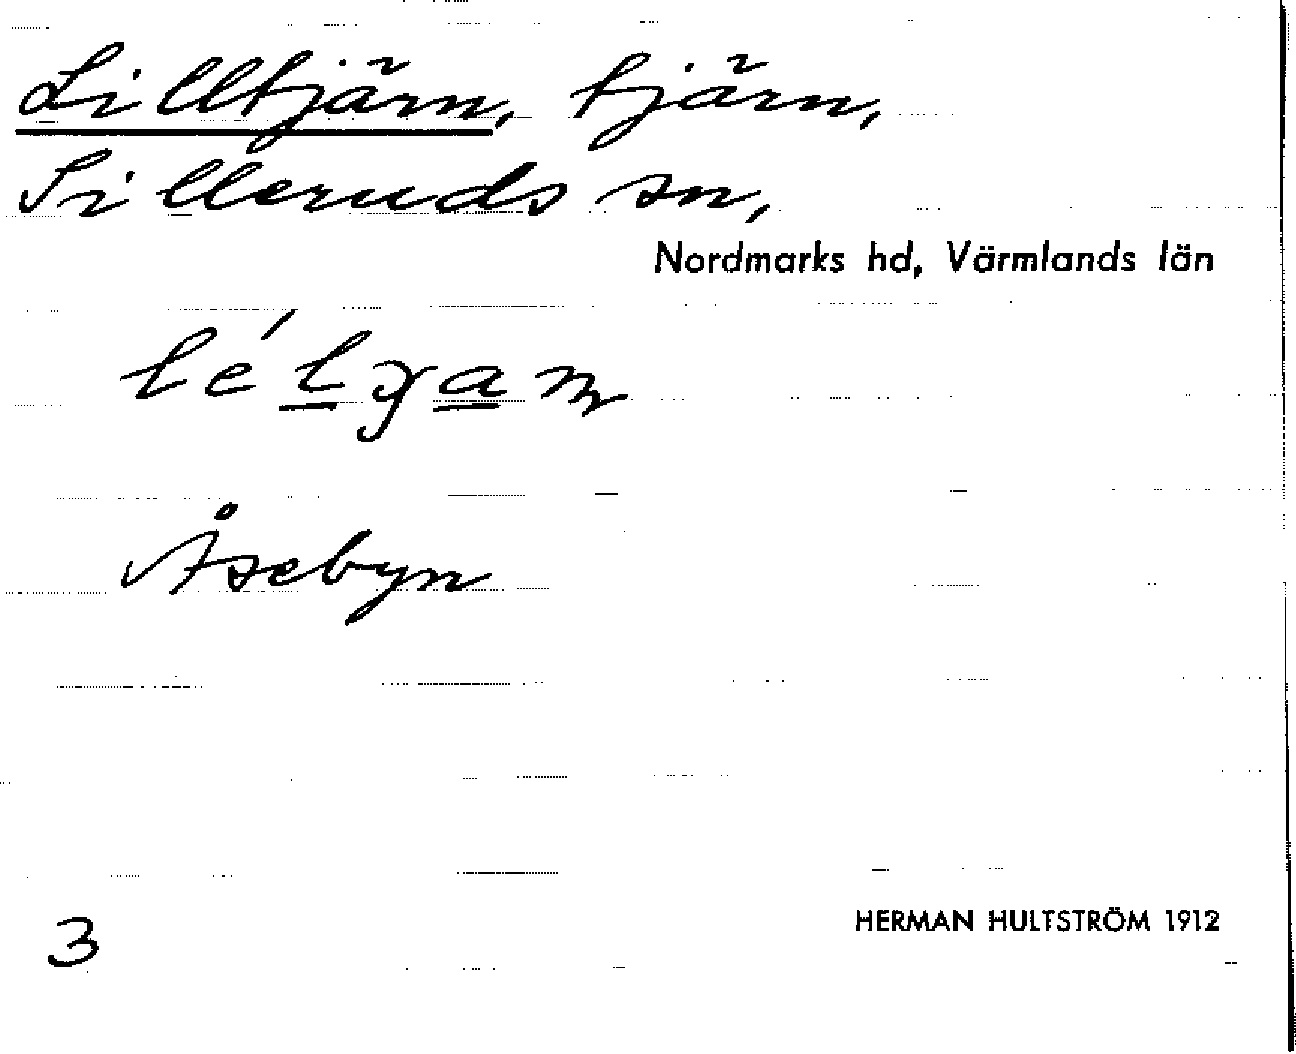 Lilltjärn, tjärn,
Silleruds sn,
Nordmarks hd, Värmlands län
Åsebyn
3
HERMAN HULTSTRÖM 1912